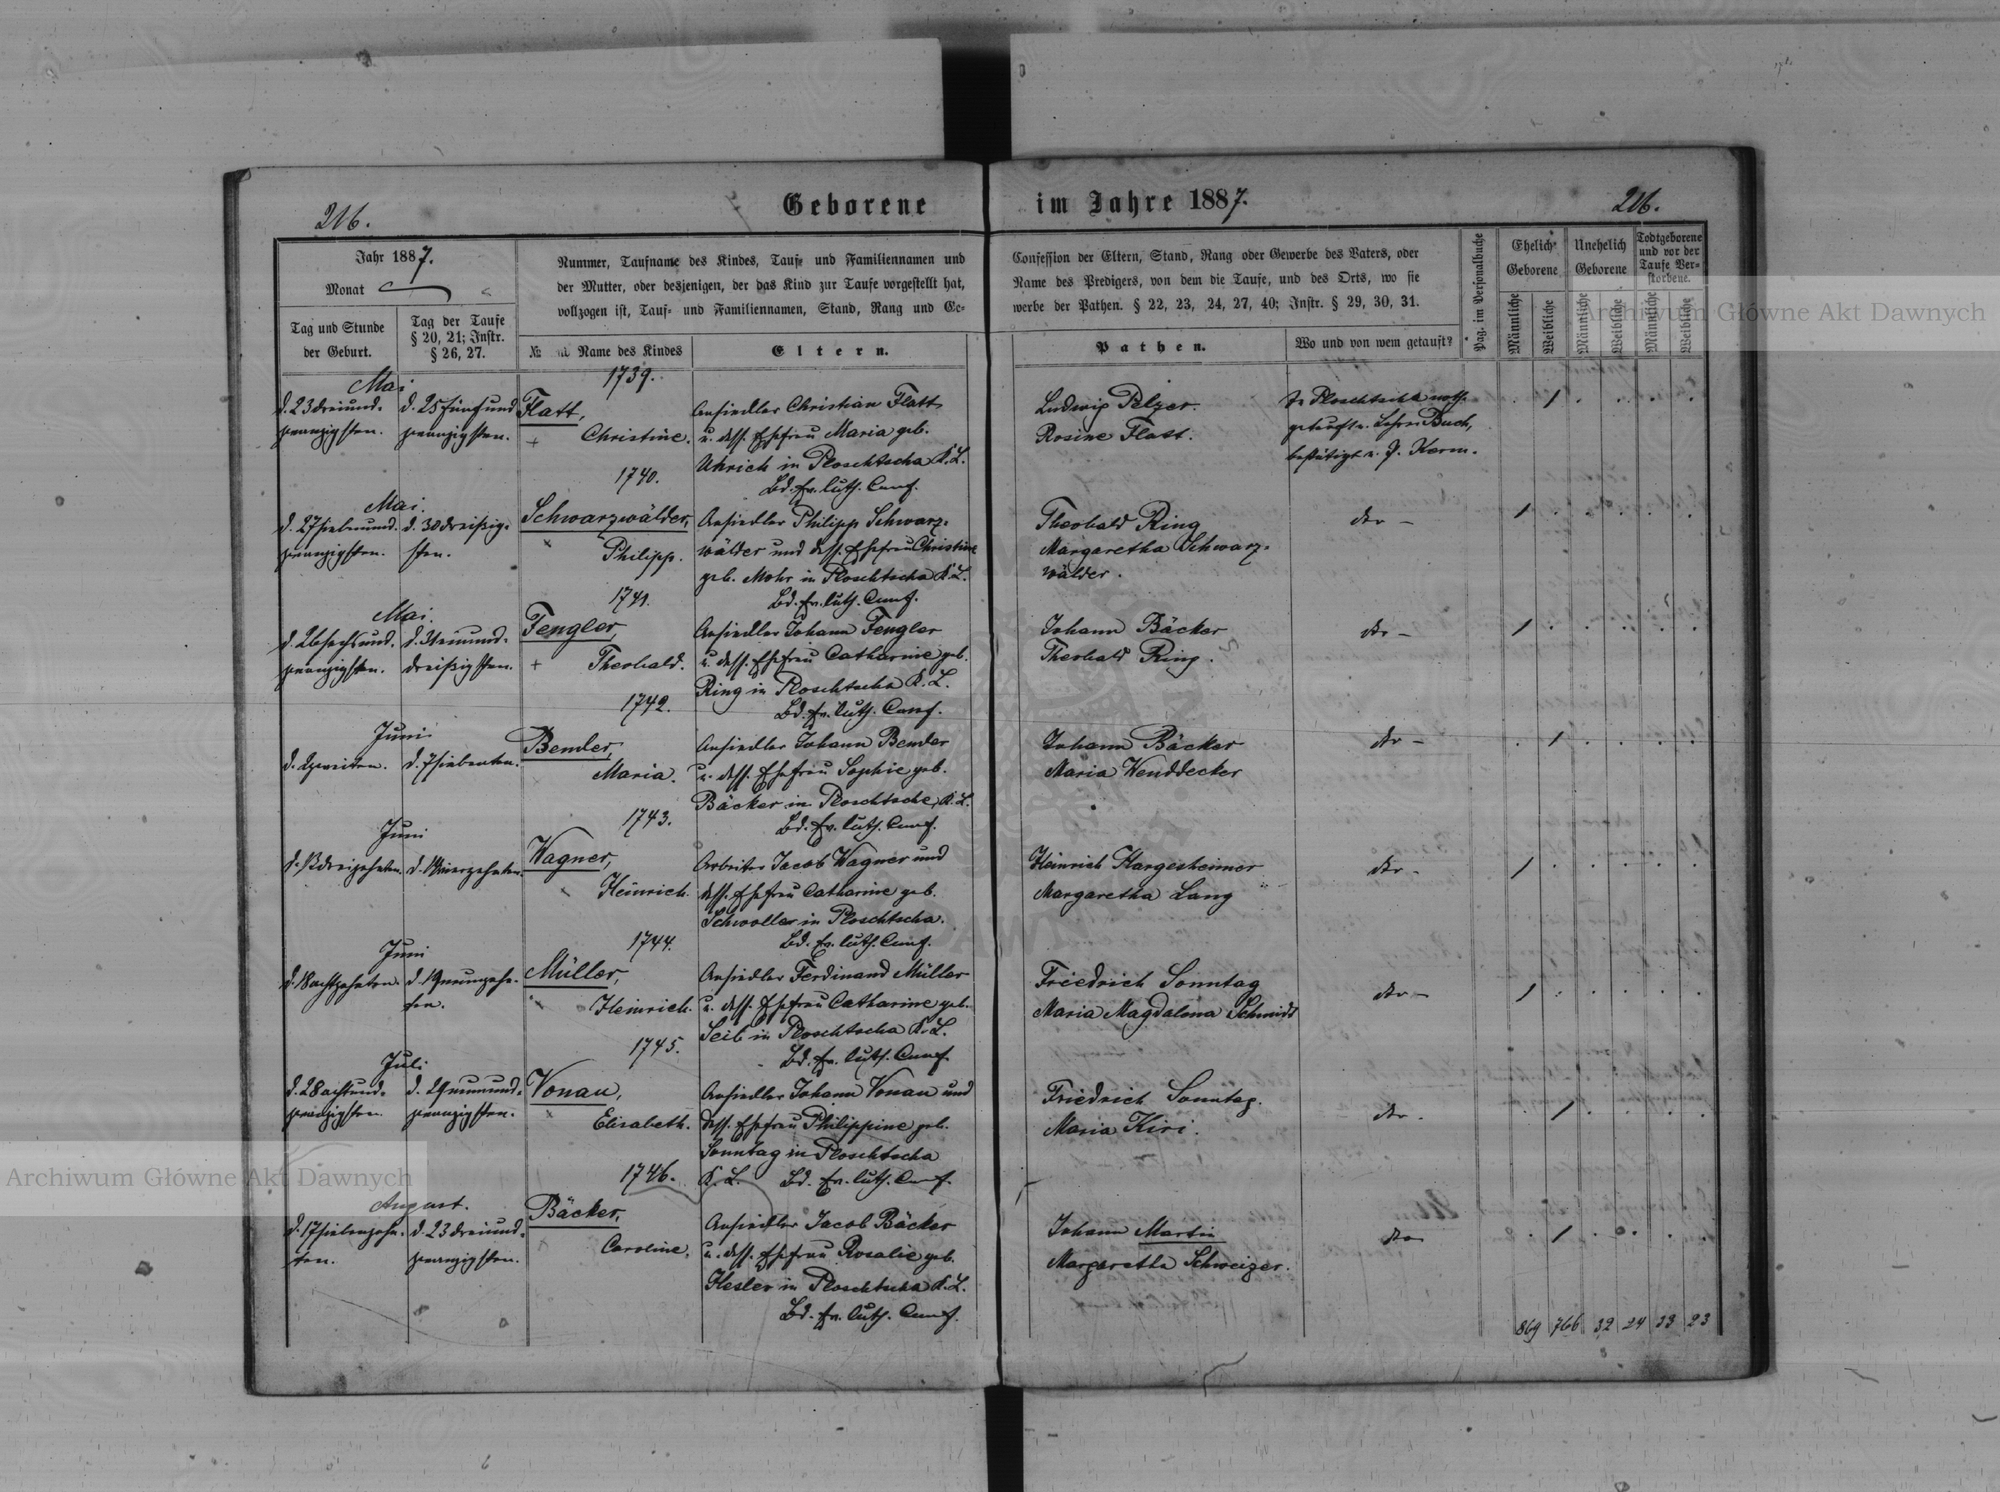 Geborene im Jahre 1887.
216.
216.
Jahr 1887.
Monat
Tag und Stunde
der Geburt.
Tag der Taufe
§ 20, 21; Instr.
§ 26, 27.
Nummer, Taufname des Kindes, Tauf- und Familiennamen und
der Mutter, oder desjenigen, der das Kind zur Taufe vorgestellt hat,
vollzogen ist, Tauf- und Familiennamen, Stand, Rang und Ge-
№ Name des Kindes
Eltern.
Confession der Eltern, Stand, Rang oder Gewerbe des Vaters, oder
Name des Predigers, von dem die Taufe, und des Orts, wo sie
werbe der Pathen. § 22, 23, 24, 27, 40; Instr. § 29, 30, 31.
Pathen.
Wo und von wem getauft?
Pag. im Personalbuche
Ehelich
Geborene
Unehelich
Geborene
Todtgeborene
und vor der
Taufe Ver-
storbene.
Männliche
Weibliche
Männliche
Weibliche
Männliche
Weibliche
Mai
d. 23 dreiund-
zwanzigsten.
d. 25 fünfund
zwanzigsten.
1739.
Flatt,
+ Christine.
Ansiedler Christian Flatt
u. dess. Ehefrau Maria geb.
Uhrich in Ploschtscha K. L.
Bd. Ev. luth. Conf.
Ludwig Pelzer.
Rosine Flatt.
In Ploschtscha noth-
getauft v. Lehrer Buch,
bestätigt v. P. Karm.
1
Mai.
d. 27 siebenund-
zwanzigsten.
d. 30 dreißig-
sten.
1740.
Schwarzwälder,
Philipp.
Ansiedler Philipp Schwarz-
wälder und dess. Ehefrau Christine
geb. Mohr in Ploschtscha K. L.
Bd. Ev. luth. Conf.
Theobald Ring
Margaretha Schwarz-
wälder.
dto -
1
Mai.
d. 26 sechsund-
zwanzigsten.
d. 31 einund-
dreißigsten.
1741.
Fengler,
+ Theobald.
Ansiedler Johann Fengler
u. dess. Ehefrau Catharine geb.
Ring in Ploschtscha K. L.
Bd. Ev. luth. Conf.
Johann Bäcker
Theobald Ring.
dto -
1
Juni
d. 2 zweiten.
d. 7 siebenten.
1742.
Bender,
Maria.
Ansiedler Johann Bender
u. dess. Ehefrau Sophie geb.
Bäcker in Ploschtscha, K. L.
Bd. Ev. luth. Conf.
Johann Bäcker
Maria Wenddecker
dto -
1
Juni
d. 13 dreizehnten.
d. 14 vierzehnten.
1743.
Wagner,
Heinrich.
Arbeiter Jacob Wagner und
dess. Ehefrau Catharine geb.
Schwoller in Ploschtscha.
Bd. Ev. luth. Conf.
Heinrich Hargesheimer
Margaretha Lang
dto -
1
Juni
d. 18 achtzehnten.
d. 19 neunzehn-
ten.
1744.
Müller,
Heinrich.
Ansiedler Ferdinand Müller
u. dess. Ehefrau Catharine geb.
Seib in Ploschtscha K. L.
Bd. Ev. luth. Conf.
Friedrich Sonntag
Maria Magdalena Schmidt
dto -
1
Juli
d. 28 achtund-
zwanzigsten.
d. 29 neunund-
zwanzigsten.
1745.
Vonau,
Elisabeth.
Ansiedler Johann Vonau und
dess. Ehefrau Philippine geb.
Sonntag in Ploschtscha
K. L. Bd. Ev. luth. Conf.
Friedrich Sonntag.
Maria Kiri.
dto -
1
August.
d. 17 siebenzehn-
ten.
d. 23 dreiund-
zwanzigsten.
1746.
Bäcker,
Caroline.
Ansiedler Jacob Bäcker
u. dess. Ehefrau Rosalie geb.
Hesler in Ploschtscha K. L.
Bd. Ev. luth. Conf.
Johann Martin
Margaretha Schweizer.
dto
1
869 766 32 24 33 23
Archiwum Główne Akt Dawnych
Archiwum Główne Akt Dawnych